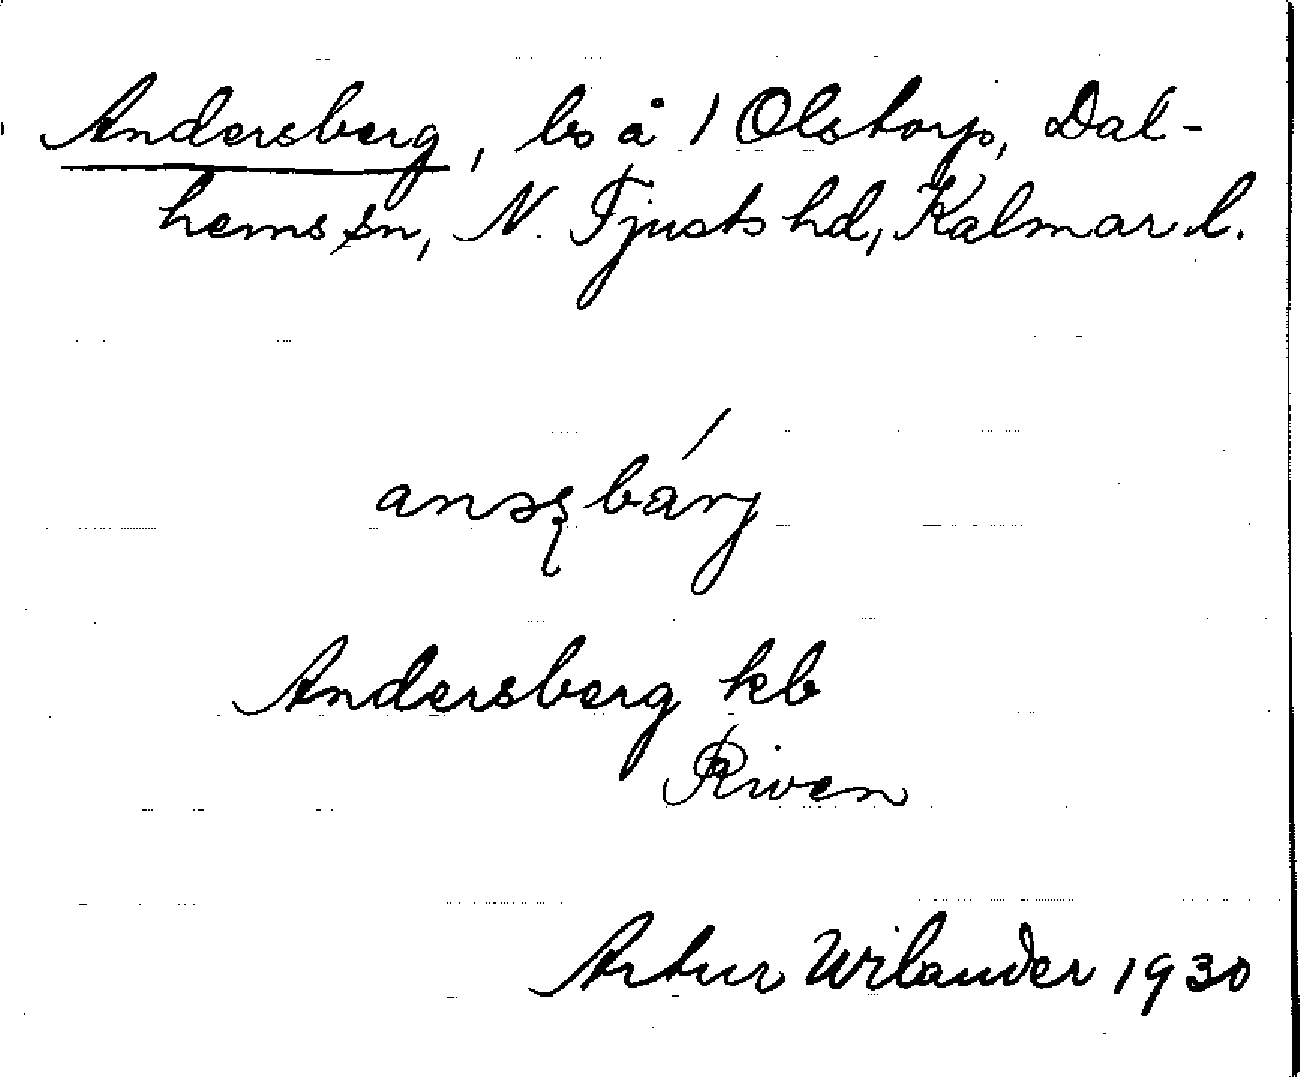 Andersberg, ls å 1 Olstorp, Dal-
hems sn, N. Tjusts hd, Kalmar l.
Andersberg kb
Riven
Artur Wilander 1930